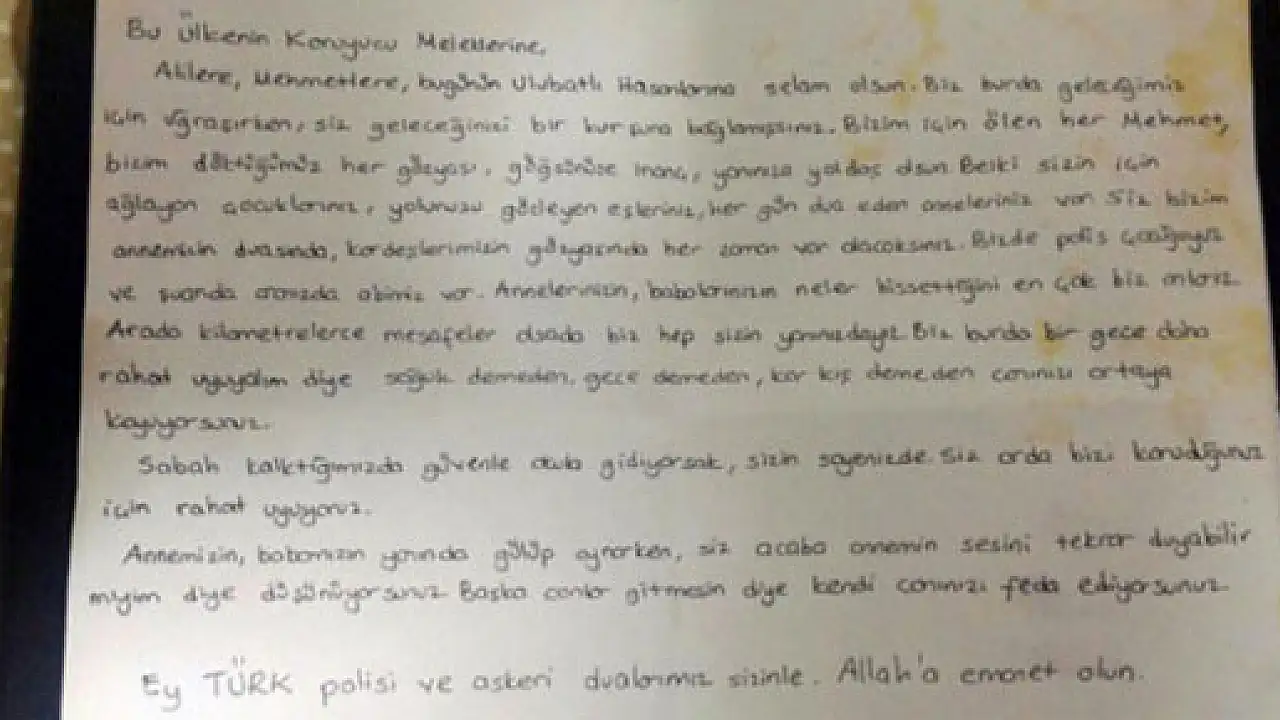 Bu Ülkenin Koruyucu Meleklerine,
Alilere, Mehmetlere, bugünün Ulubatlı Hasanlarına selam olsun. Biz burda geleceğimiz
için uğraşırken, siz geleceğinizi bir kurşuna bağlamışsınız. Bizim için ölen her Mehmet,
bizim döktüğümüz her gözyaşı, göğsünüze inanç, yanınıza yoldaş olsun Belki sizin için
ağlayan çocuklarınız, yolunuzu gözleyen eşleriniz, her gün dua eden anneleriniz var Siz bizim
annemizin duasında, kardeşlerimizin gözyaşında her zaman var olacaksınız. Bizde polis çocuğuyuz
ve şuanda aranızda abimiz var. Annelerinizin, babalarınızın neler hissettiğini en çok biz anlarız
Arada kilometrelerce mesafeler olsada biz hep sizin yanınızdayız Biz burda bir gece daha
rahat uyuyalım diye soğuk demeden, gece demeden, kar kış demeden canınızı ortaya
koyuyorsunuz.
Sabah kalktığımızda güvenle okula gidiyorsak, sizin sayenizde. Siz orda bizi koruduğunuz
için rahat uyuyoruz.
Annemizin, babamızın yanında gülüp oynarken, siz acaba annemin sesini tekrar duyabilir
miyim diye düşünüyorsunuz Başka canlar gitmesin diye kendi canınızı feda ediyorsunuz
Ey TÜRK polisi ve askeri dualarımız sizinle. Allah'a emanet olun.